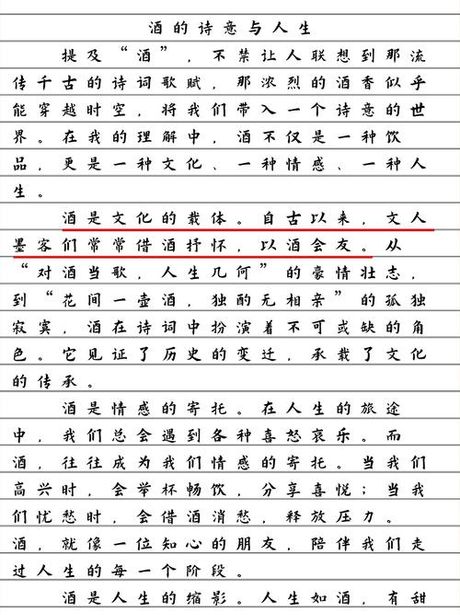 酒的诗意与人生
提及“酒”，不禁让人联想到那流
传千古的诗词歌赋，那浓烈的酒香似乎
能穿越时空，将我们带入一个诗意的世
界。在我的理解中，酒不仅是一种饮
品，更是一种文化、一种情感、一种人
生。
酒是文化的载体。自古以来，文人
墨客们常常借酒抒怀，以酒会友。从
“对酒当歌，人生几何”的豪情壮志，
到“花间一壶酒，独酌无相亲”的孤独
寂寞，酒在诗词中扮演着不可或缺的角
色。它见证了历史的变迁，承载了文化
的传承。
酒是情感的寄托。在人生的旅途
中，我们总会遇到各种喜怒哀乐。而
酒，往往成为我们情感的寄托。当我们
高兴时，会举杯畅饮，分享喜悦；当我
们忧愁时，会借酒消愁，释放压力。
酒，就像一位知心的朋友，陪伴我们走
过人生的每一个阶段。
酒是人生的缩影。人生如酒，有甜